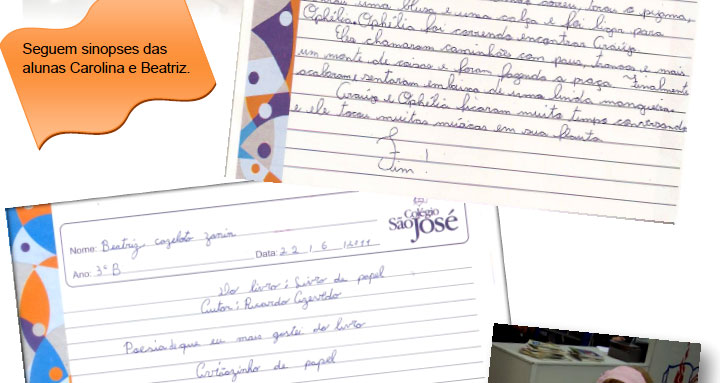 Seguem sinopses das
alunas Carolina e Beatriz.
uma blusa e uma calça e foi ligar para
Ophélia. Ophélia foi correndo encontrar
Eles chamaram caminhões com paus, troncos e mais
um monte de coisas e foram fazendo a praça. Finalmente
acabaram e sentaram embaixo de uma linda mangueira.
e Ophélia ficaram muito tempo conversando
e ele tocou muitas músicas em sua flauta.
Fim!
Colégio
São José
Nome: Beatriz cazeloto zanin
Data: 22 / 6 / 2011
Ano: 3º B
Do livro: Livro de papel
Autor: Ricardo Azevedo
Poesia de que eu mais gostei do livro
Cartãozinho de papel